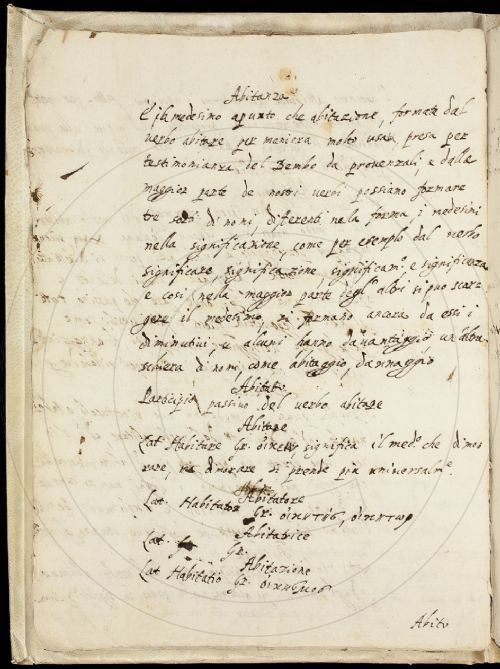 Abitanza
È il medesimo apunto che abitazione, formata dal
verbo abitare per maniera molto usata, presa per
testimonianza del Bembo da provenzali, e dalla
maggior parte de nostri verbi possiamo formare
tre sorti di nomi, diferenti nella forma, i medesimi
nella significazione, come per esempio dal verbo
significare, significazione, significam.º e significanza
e così nella maggior parte degl' altri si puo scor-
gere il medesimo, si formano ancora da essi i
diminutivi, e alcuni hanno davantaggio un'altra
schiera di nomi come abitaggio, dannaggio
Abitato
Participio passivo del verbo abitare
Abitare
Lat Habitare Gr. οἰκεῖν significa il med.º che dimo
rare, ma dimorare si prende più universalm.e
Abitatore
Lat. Habitator Gr. οἰκητὴς, οἰκητωρ
Abitatrice
Lat. Gr.
Abitazione
Lat Habitatio Gr. οἰκησις
Abito